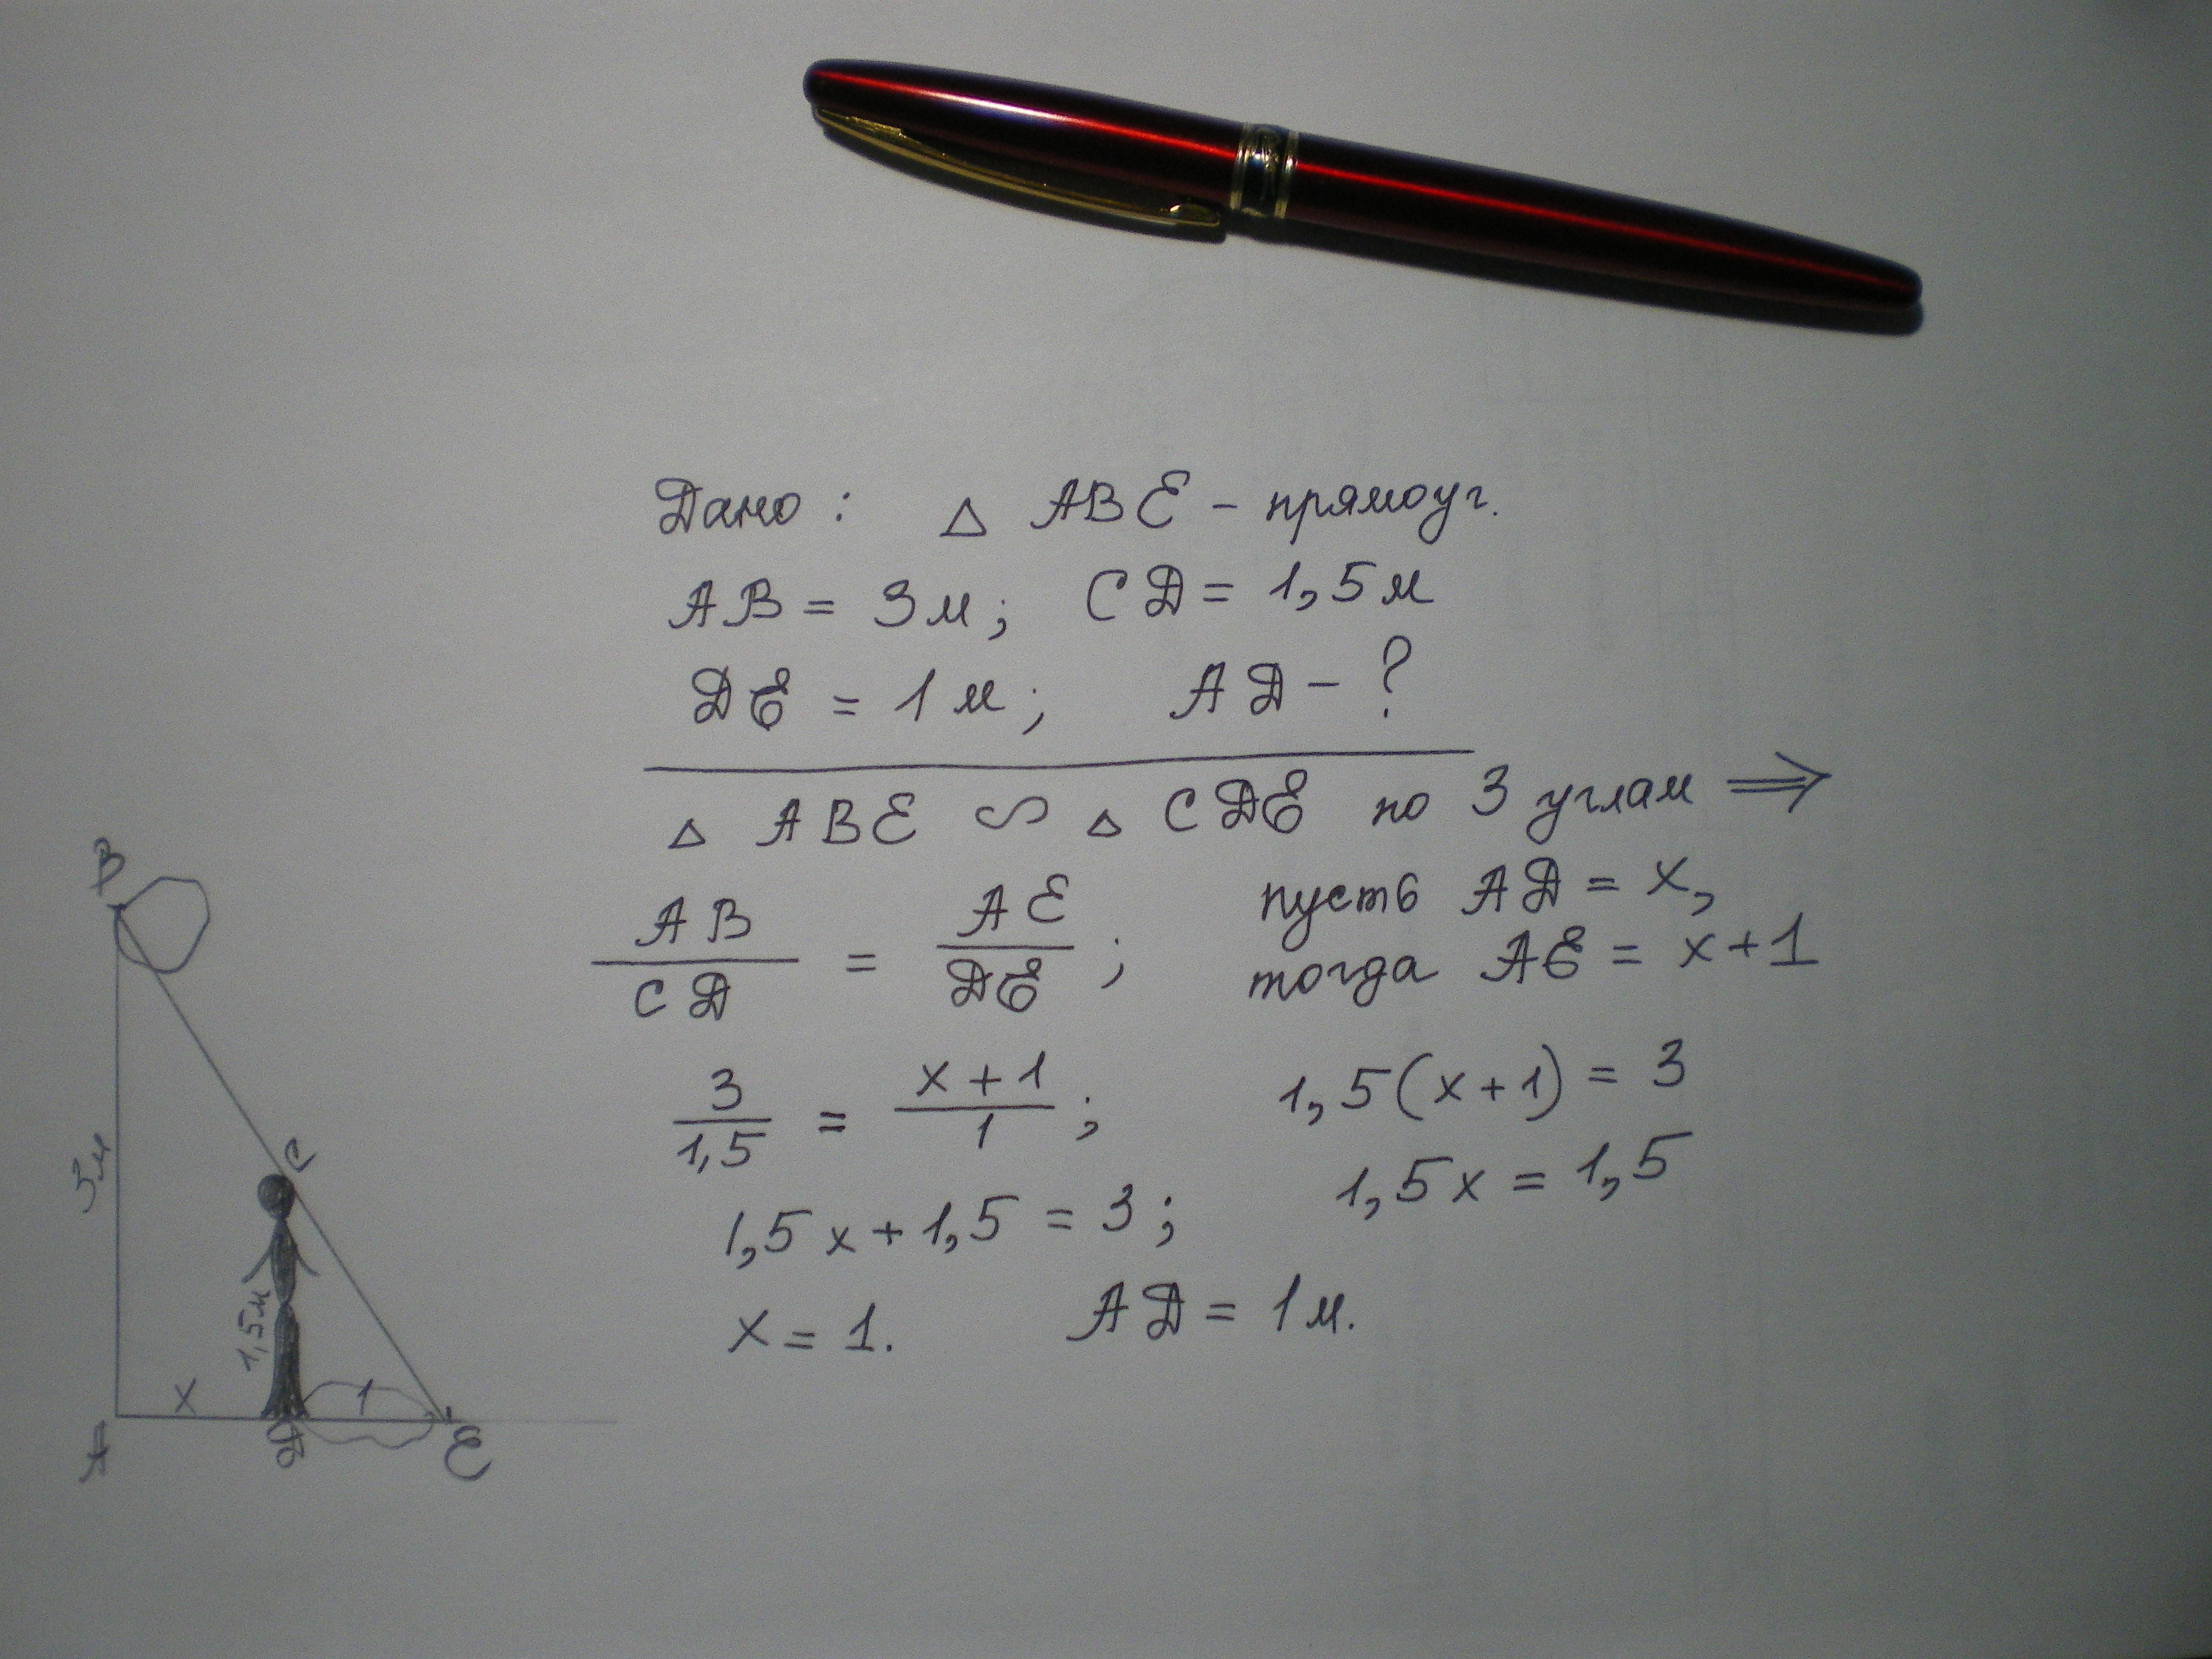 Дано: △ ABE – прямоуг.
AB = 3м; CД = 1,5м
ДE = 1м; AД – ?
△ ABE ∽ △ CДE по 3 углам ⟹
AB/CД = AE/ДE; пусть AД = x,
тогда AE = x+1
3/1,5 = x+1/1; 1,5(x+1) = 3
1,5x+1,5 = 3; 1,5x = 1,5
x = 1. AД = 1м.
B
C
3м
1,5м
x
1
A
Д
E